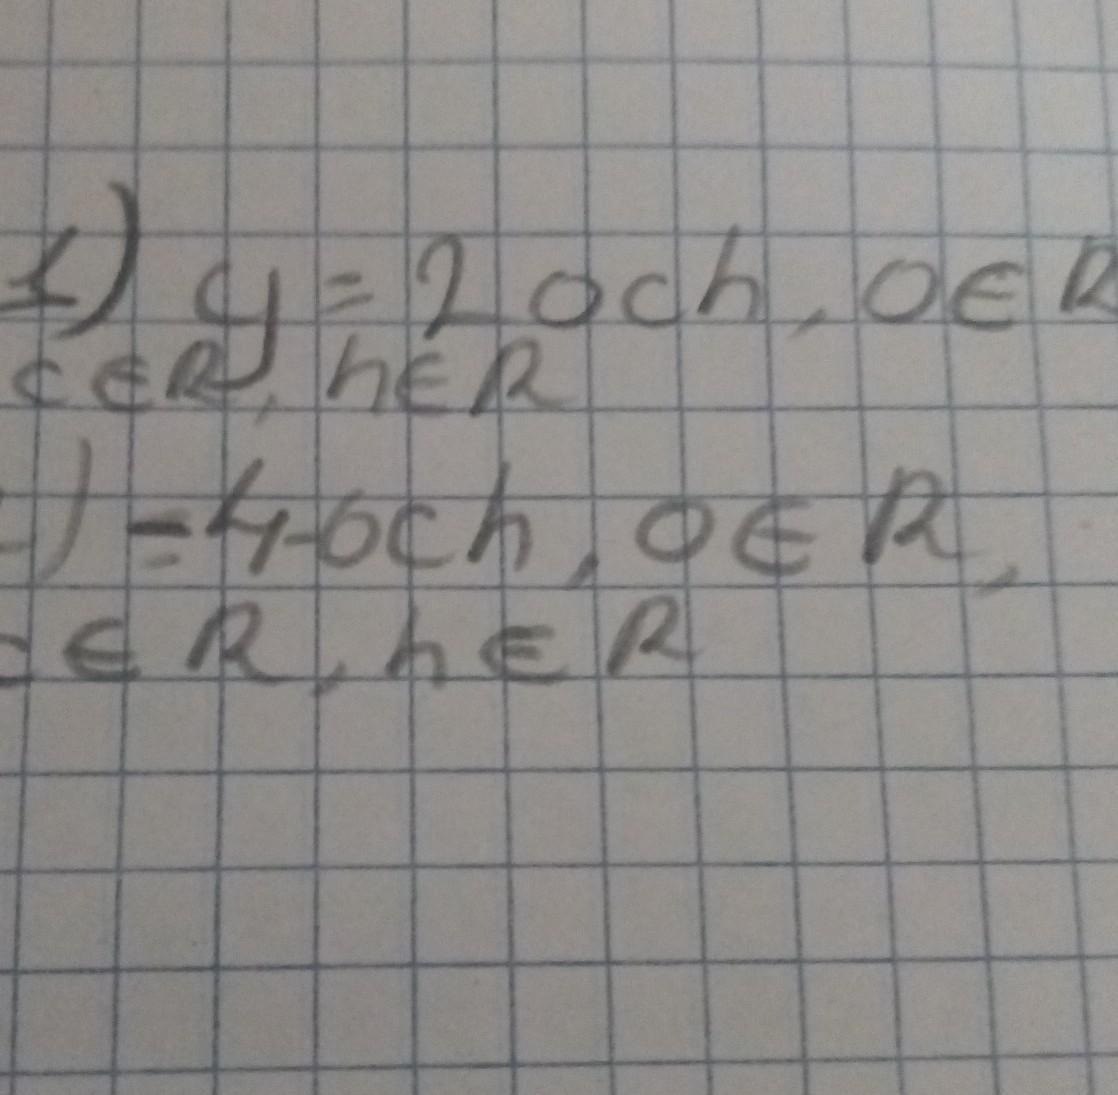 1) y = 2 och, o ∈ R
c ∈ R, h ∈ R
) = 4 och, o ∈ R,
c ∈ R, h ∈ R